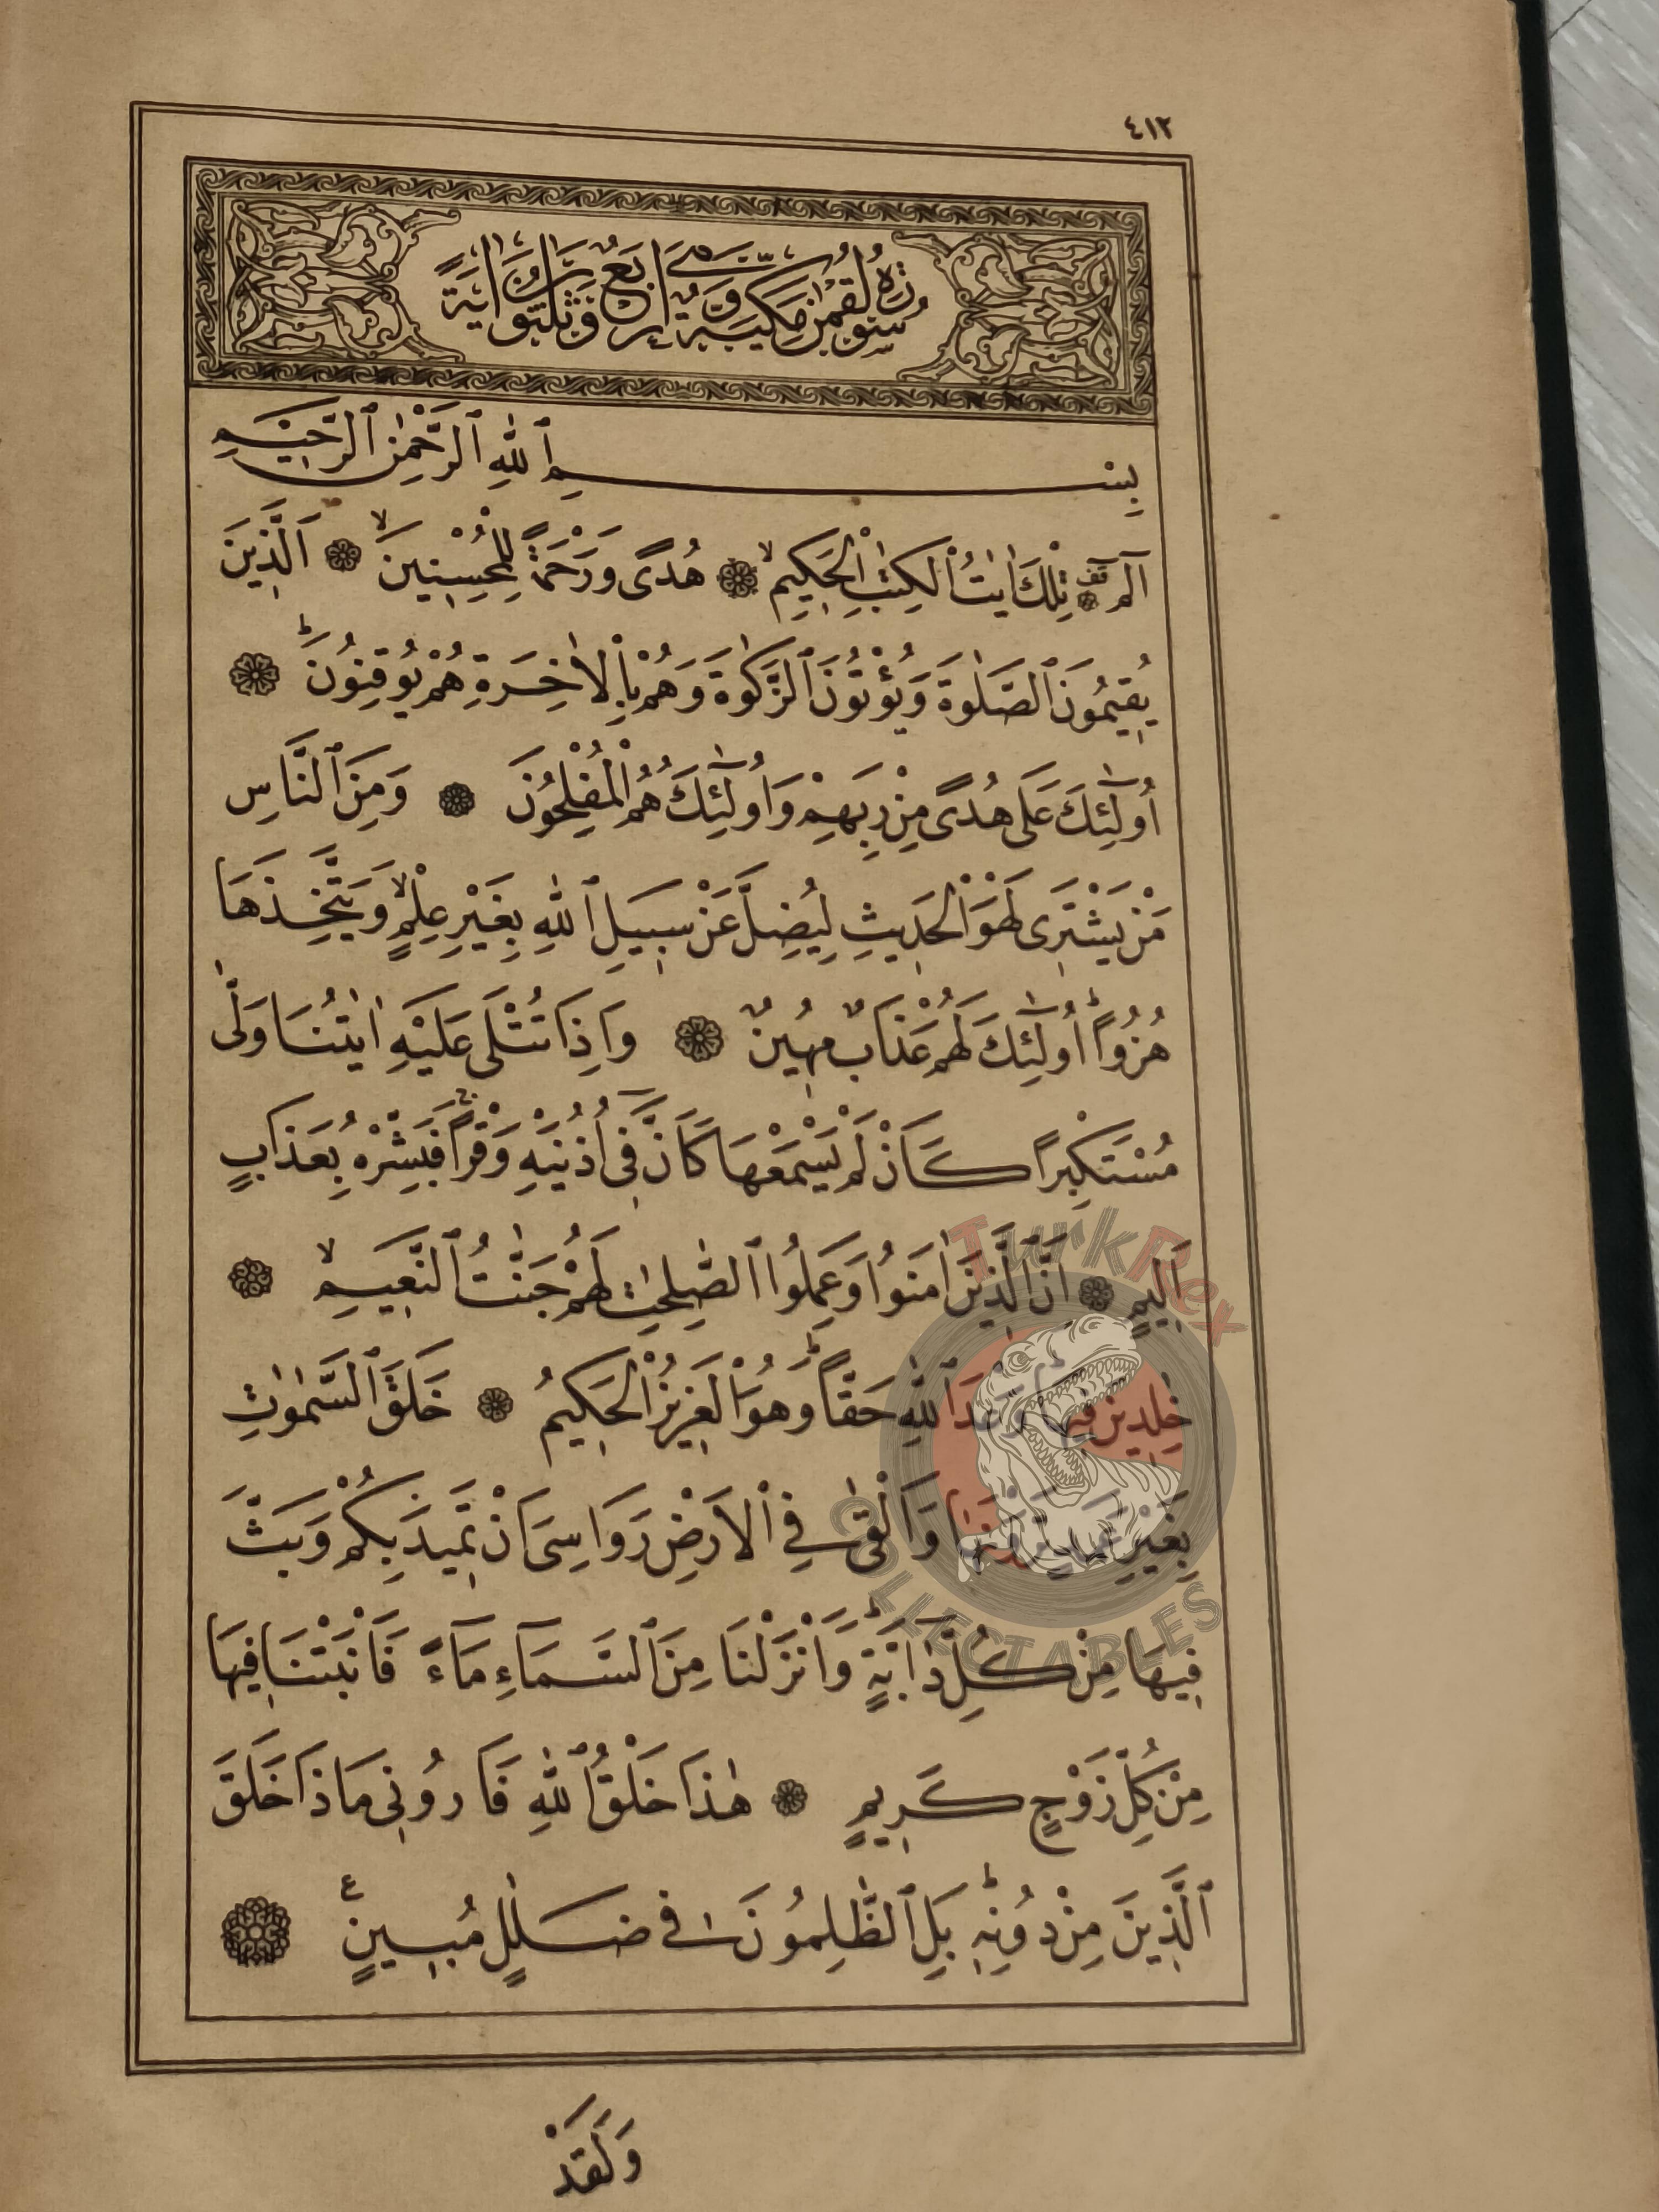 ٤١٢
سُورَةُ لُقْمٰنَ مَكِّيَّةٌ وَهِىَ اَرْبَعٌ وَثَلٰثُونَ اٰيَةً
بِسْمِ ٱللّٰهِ ٱلرَّحْمٰنِ ٱلرَّحِيمِ
الٓمٓ قف تِلْكَ اٰيَاتُ الْكِتٰبِ الْحَكِيمِ لا هُدًى وَرَحْمَةً لِلْمُحْسِنِينَ لا اَلَّذِينَ
يُقِيمُونَ ٱلصَّلٰوةَ وَيُؤْتُونَ ٱلزَّكٰوةَ وَهُمْ بِالْاٰخِرَةِ هُمْ يُوقِنُونَ ط
اُولٰٓئِكَ عَلٰى هُدًى مِنْ رَبِّهِمْ وَاُولٰٓئِكَ هُمُ الْمُفْلِحُونَ وَمِنَ ٱلنَّاسِ
مَنْ يَشْتَرِى لَهْوَ الْحَدِيثِ لِيُضِلَّ عَنْ سَبِيلِ ٱللّٰهِ بِغَيْرِ عِلْمٍ لا وَيَتَّخِذَهَا
هُزُوًا ط اُولٰٓئِكَ لَهُمْ عَذَابٌ مُهِينٌ وَاِذَا تُتْلٰى عَلَيْهِ اٰيَاتُنَا وَلّٰى
مُسْتَكْبِرًا كَاَنْ لَمْ يَسْمَعْهَا كَاَنَّ فِىٓ اُذُنَيْهِ وَقْرًا ج فَبَشِّرْهُ بِعَذَابٍ
اَلِيمٍ اِنَّ الَّذِينَ اٰمَنُوا وَعَمِلُوا ٱلصّٰلِحٰتِ لَهُمْ جَنّٰتُ ٱلنَّعِيمِ لا
خٰلِدِينَ فِيهَا ط وَعْدَ ٱللّٰهِ حَقًّا ط وَهُوَ الْعَزِيزُ الْحَكِيمُ خَلَقَ ٱلسَّمٰوٰتِ
بِغَيْرِ عَمَدٍ تَرَوْنَهَا وَاَلْقٰى فِى الْاَرْضِ رَوَاسِىَ اَنْ تَمِيدَ بِكُمْ وَبَثَّ
فِيهَا مِنْ كُلِّ دَٓابَّةٍ ط وَاَنْزَلْنَا مِنَ ٱلسَّمَٓاءِ مَٓاءً فَاَنْبَتْنَا فِيهَا
مِنْ كُلِّ زَوْجٍ كَرِيمٍ هٰذَا خَلْقُ ٱللّٰهِ فَاَرُونِى مَاذَا خَلَقَ
ٱلَّذِينَ مِنْ دُونِهِ ط بَلِ ٱلظّٰلِمُونَ فِى ضَلَالٍ مُبِينٍ ع
وَلَقَدْ
TurkRex
COLLECTABLES